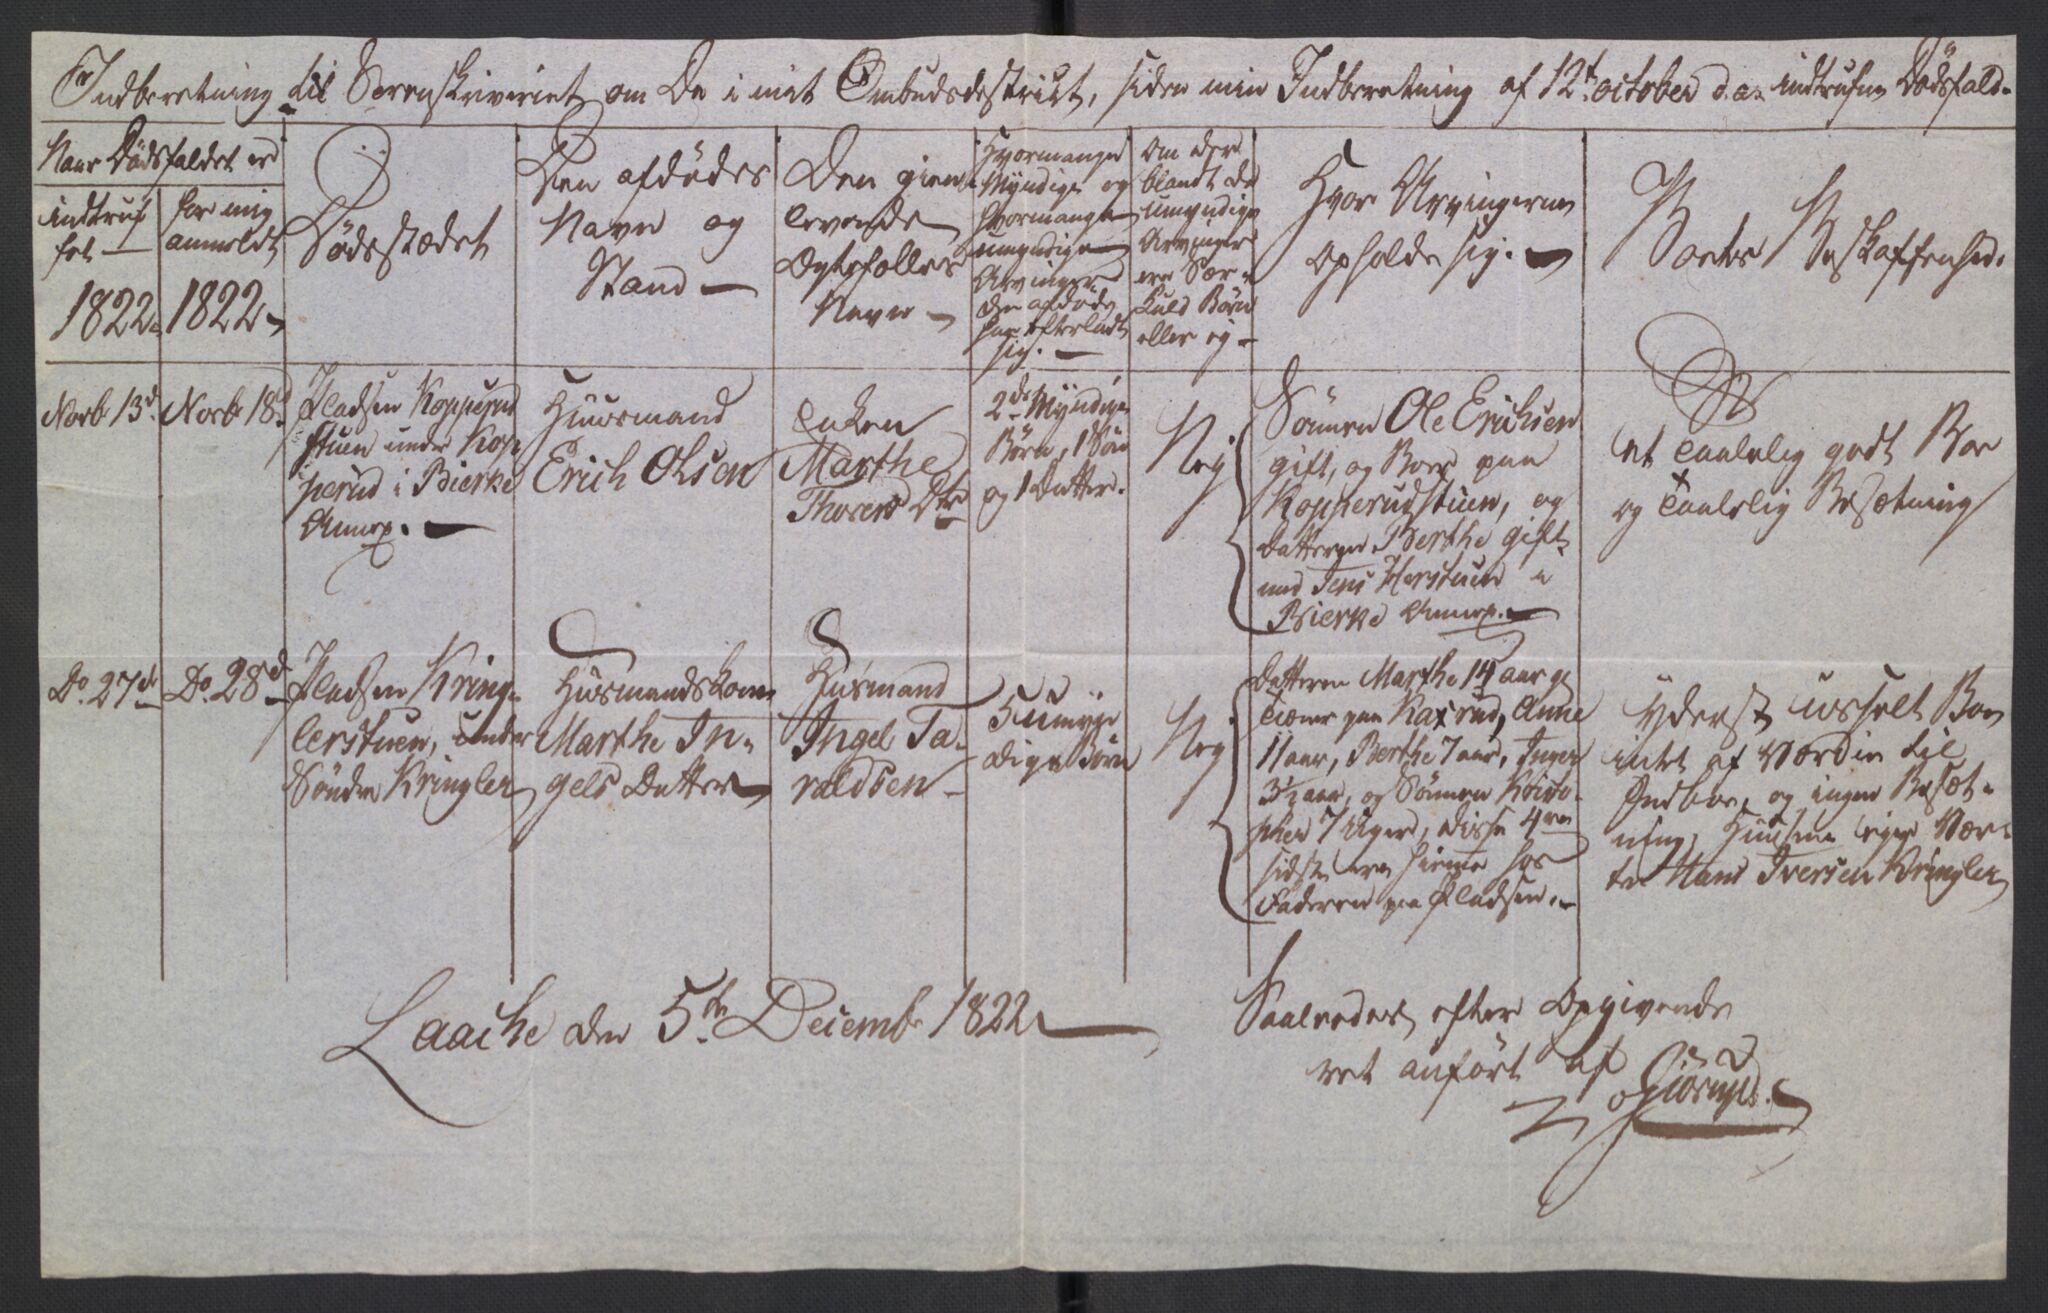 Indberetning til Sorenskriveriet om De i mit Ombudsdestrict, siden min Indberetning af 12te october d.a. indtrufne Dødsfald.
Naar Dødsfaldet er
indtruf
fet
1822
for mig
anmeldt
1822
Dødsstædet
Den afdødes
Navn og
Stand
Den gien
levende
Ægtefælles
Navn
Hvormange
Myndige og
hvormange
umyndige
Arvinger
den afdøde
har efterladt
sig.
Om der
blandt de
umyndige
Arvinger
ere Sær-
kuld Børn
eller ej
Hvor Arvingerne
opholde sig.
Boets Beskaffenhed.
Novbr 13de
Novbr 18d
Pladsen Kopperud
stuen under Kop
perud i Bierke
Annex.
Huusmand
Erich Olsen
Enken
Marthe
Thores Dtr
2de Myndige
Børn, 1 Søn
og 1 Datter.
Nej
Sønnen Ole Erichsen
gift, og Boer paa
Kopperudstuen, og
datteren Berthe gift
med Jens Herstuen i
Bierke Annex.
Et taalelig godt Boe
og taalelig Besætning
Do 27de
Do 28d
Pladsen Kring-
lerstuen, under
Søndre Kringler
Husmandskone
Marthe In-
gels Datter
Husmand
Ingel Ta-
raldsen
5 Umyn
dige Børn
Nej
Datteren Marthe 14 aar og
tiener paa Kaxrud, Anne
11 aar, Berthe 7 aar, Inger
3½ aar, og Sønnen Kristo-
pher 7 Uger, disse 4re
sidste ere hieme hos
Faderen paa Pladsen.
Yderst usselt Boe
intet af Værdie til
Indboe, og ingen Besæt-
ning, Huusene eyer Vær-
ten Hans Iversen Kringler
Laache den 5te Decembr 1822
Saaledes efter Opgivende
ret anført af
Giørup